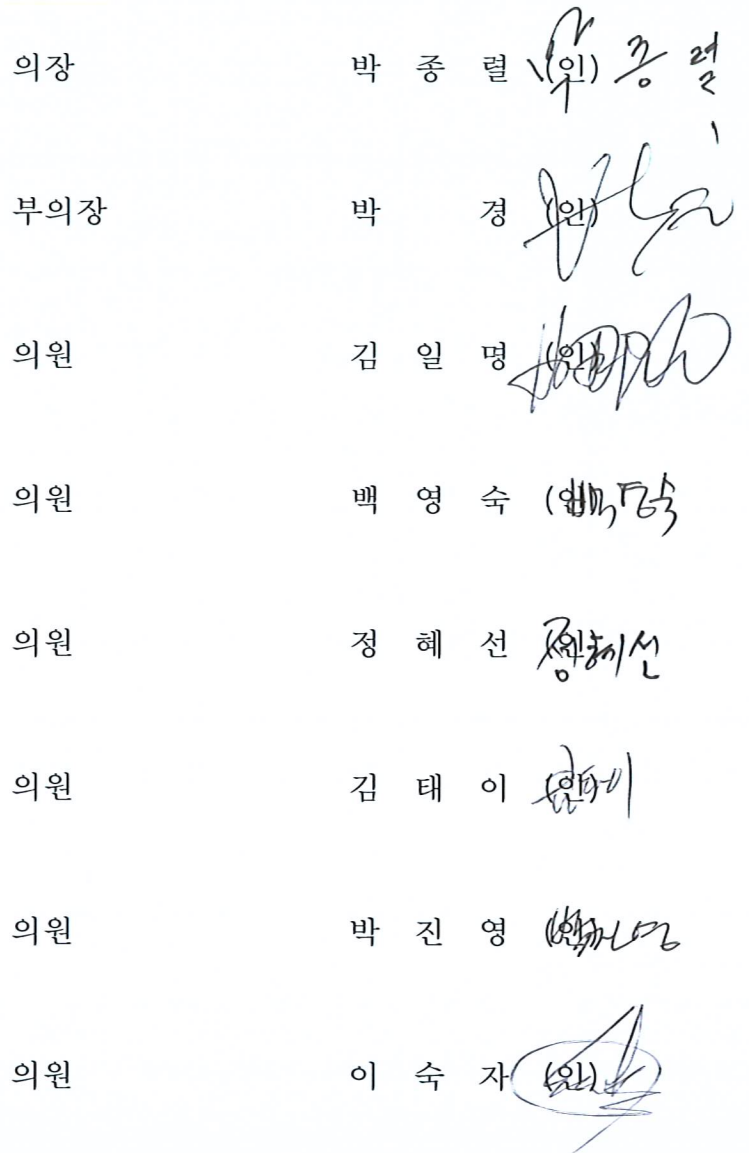 의장 박 종 렬 (인) 종 렬
부의장 박 경 (인)
의원 김 일 명 (인)
의원 백 영 숙 (인) 백영숙
의원 정 혜 선 (인) 정혜선
의원 김 태 이 (인) 김태이
의원 박 진 영 (인)
의원 이 숙 자 (인)